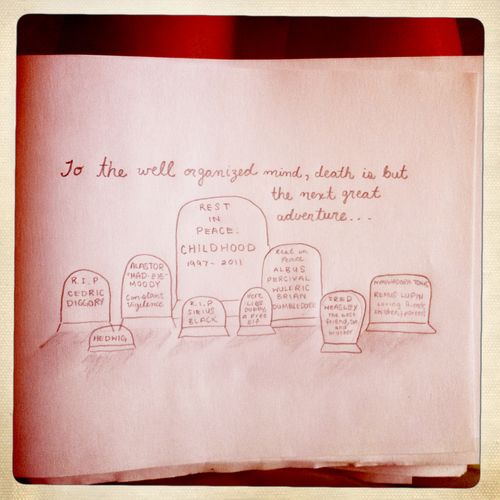 To the well organized mind, death is but
the next great
adventure...
REST
IN
PEACE.
CHILDHOOD
1997-2011
R.I.P
CEDRIC
DIGGORY
ALASTOR
"MAD-EYE"
MOODY
Constant
Vigilence
HEDWIG
R.I.P
SIRIUS
BLACK
Here
LIES
DOBBY,
A Free
Elf
Rest in
Peace
ALBUS
PERCIVAL
WULFRIC
BRIAN
DUMBLEDORE
FRED
WEASLEY
The best
friend,
and
brother
NYMPHADORA TONKS
REMUS LUPIN
Loving